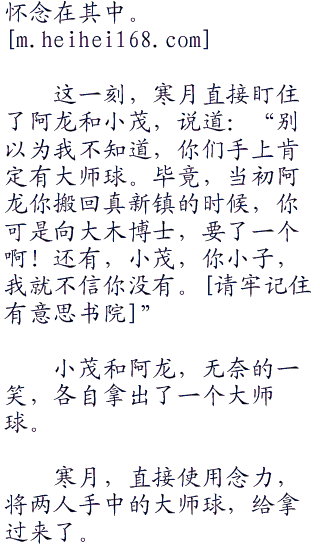 怀念在其中。
[m.heihei168.com]
这一刻，寒月直接盯住
了阿龙和小茂，说道：“别
以为我不知道，你们手上肯
定有大师球。毕竟，当初阿
龙你搬回真新镇的时候，你
可是向大木博士，要了一个
啊！还有，小茂，你小子，
我就不信你没有。[请牢记住
有意思书院]”
小茂和阿龙，无奈的一
笑，各自拿出了一个大师
球。
寒月，直接使用念力，
将两人手中的大师球，给拿
过来了。